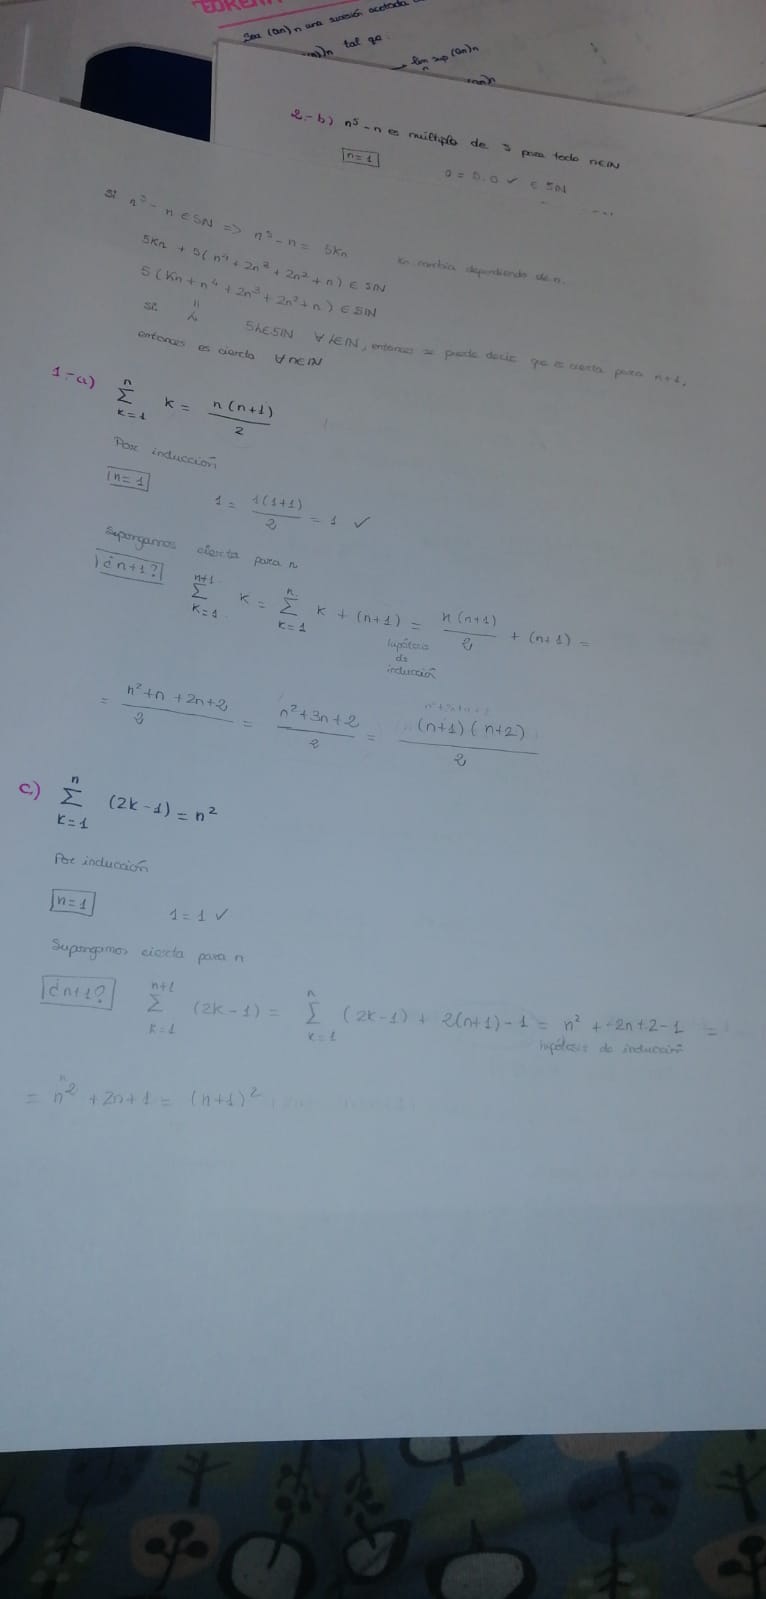 TEOREMA
Sea (an)n una sucesión acotada
tal qe.
lim sup (an)n
n
2.-b) n⁵-n es múltiplo de 5 para todo n∈IN
n=1
0 = 5.0 ✓ ∈ 5IN
Si n⁵-n ∈ 5IN => n⁵-n = 5Kn
Kn cambia dependiendo de n.
5Kn + 5(n⁴ + 2n³ + 2n² + n) ∈ 5IN
5(Kn + n⁴ + 2n³ + 2n² + n) ∈ 5IN
si
5h∈5IN ∀h∈IN, entonces se puede decir que es cierta para n+1,
entonces es cierto ∀n∈IN
1.-a) n∑k=1 k = n(n+1)/2
Por inducción
n=1
1 = 1(1+1)/2 = 1 ✓
Supongamos cierta para n
¿n+1? n+1∑k=1 k = n∑k=1 k + (n+1) = n(n+1)/2 + (n+1) =
hipótesis
de
inducción
= n²+n+2n+2/2 = n²+3n+2/2 = (n+1)(n+2)/2
c) n∑k=1 (2k-1) = n²
Por inducción
n=1
1=1 ✓
Supongamos cierta para n
¿n+1? n+1∑k=1 (2k-1) = n∑k=1 (2k-1) + 2(n+1)-1 = n² + 2n+2-1 =
hipótesis de inducción
= n² + 2n+1 = (n+1)²